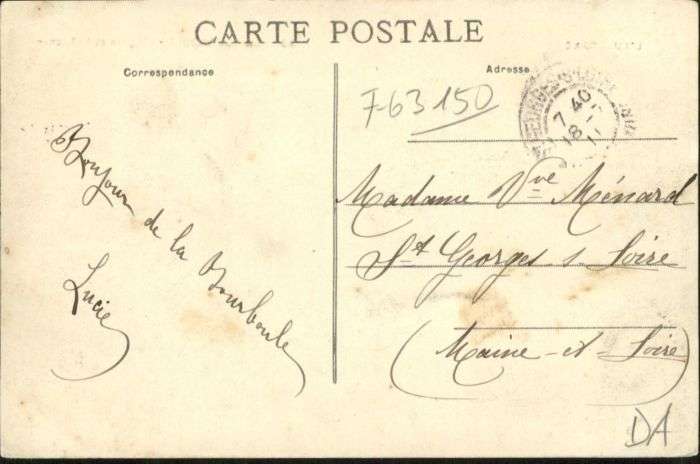 CARTE POSTALE
Correspondance
Adresse
F63 150
7 40
18
11
Bonjour de la Bourboule
Lucie
Madame Vve Ménard
St Georges s Loire
(Maine-et-Loire)
DA